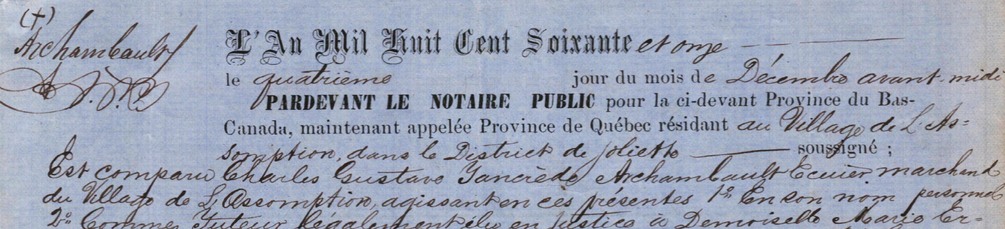 (+)
Archambault
L'An Mil Huit Cent Soixante et onze
le quatrième jour du mois de Décembre avant-midi
PARDEVANT LE NOTAIRE PUBLIC pour la ci-devant Province du Bas-
Canada, maintenant appelée Province de Québec résidant au Village de L'As-
somption, dans le District de Joliette soussigné ;
Est comparu Charles Gustave Tancrède Archambault Ecuier marchand
du Village de L'Assomption, agissant en ces présentes 1º En son nom personnel
2º Comme Tuteur légalement élu en Justice à Demoiselle Marie Er-